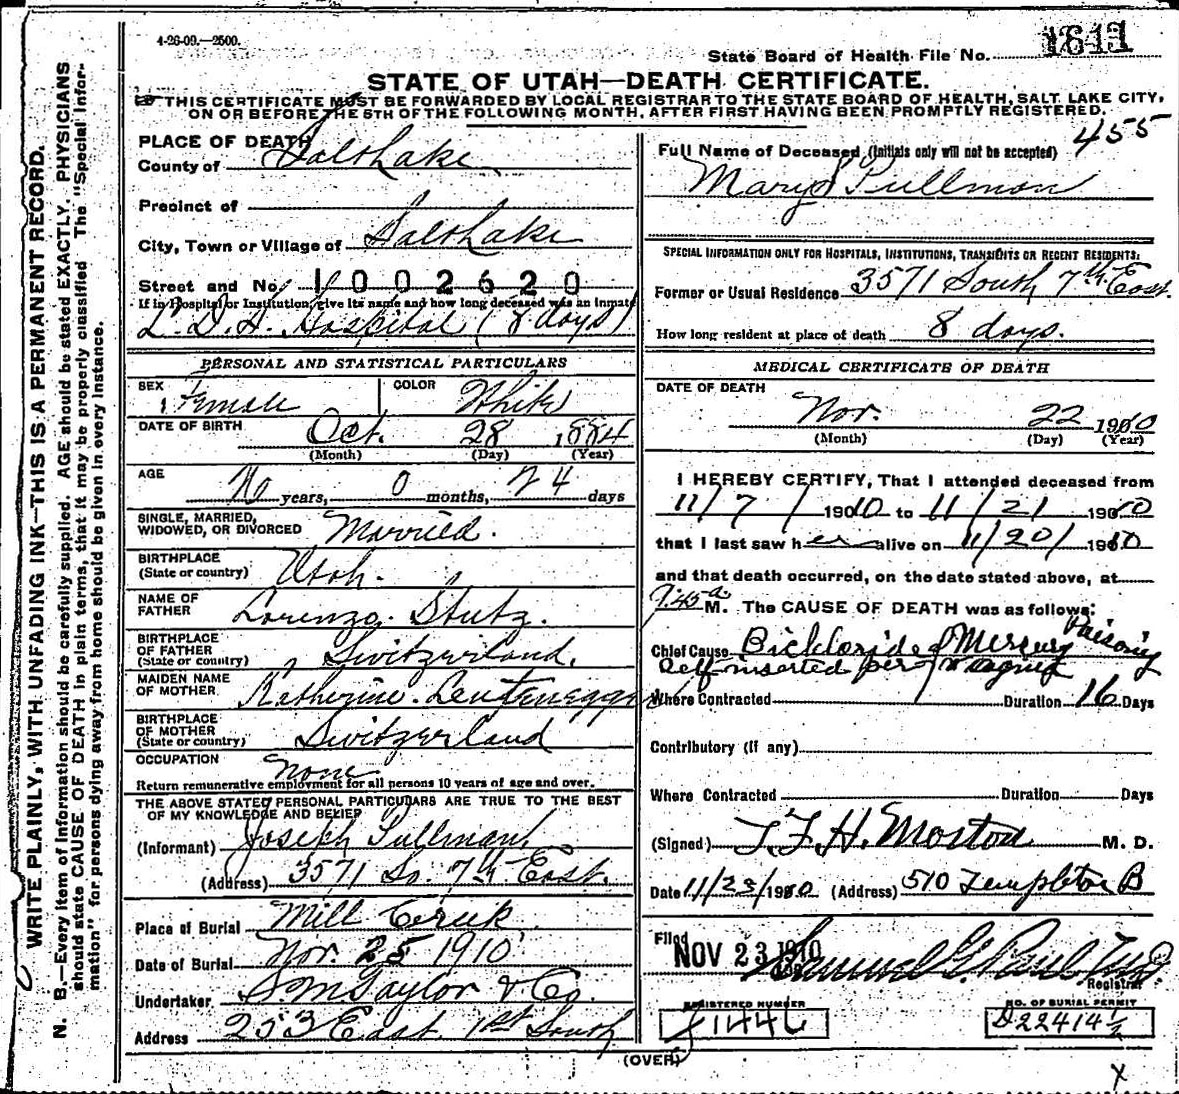 4-26-09.—2500.
State Board of Health File No. 1811
STATE OF UTAH—DEATH CERTIFICATE.
THIS CERTIFICATE MUST BE FORWARDED BY LOCAL REGISTRAR TO THE STATE BOARD OF HEALTH, SALT LAKE CITY,
ON OR BEFORE THE 5TH OF THE FOLLOWING MONTH, AFTER FIRST HAVING BEEN PROMPTLY REGISTERED.
WRITE PLAINLY, WITH UNFADING INK—THIS IS A PERMANENT RECORD.
N. B.—Every item of information should be carefully supplied. AGE should be stated EXACTLY. PHYSICIANS
should state CAUSE OF DEATH in plain terms, that it may be properly classified The "Special Infor-
mation" for persons dying away from home should be given in every instance.
PLACE OF DEATH
County of Salt Lake
Precinct of
City, Town or Village of Salt Lake
Street and No. 1002620
If in Hospital or Institution, give its name and how long deceased was an inmate
L. D. S. Hospital (8 days)
PERSONAL AND STATISTICAL PARTICULARS
SEX Female
COLOR White
DATE OF BIRTH Oct. 28 1884
(Month) (Day) (Year)
AGE
No years, 0 months, 24 days
SINGLE, MARRIED,
WIDOWED, OR DIVORCED Married.
BIRTHPLACE
(State or country) Utah.
NAME OF
FATHER Lorenzo Stutz.
BIRTHPLACE
OF FATHER
(State or country) Switzerland.
MAIDEN NAME
OF MOTHER Katherine Leutenegger
BIRTHPLACE
OF MOTHER
(State or country) Switzerland
OCCUPATION None
Return remunerative employment for all persons 10 years of age and over.
THE ABOVE STATED PERSONAL PARTICULARS ARE TRUE TO THE BEST
OF MY KNOWLEDGE AND BELIEF
(Informant) Joseph Pullman
(Address) 3571 So. 7th East.
Place of Burial Mill Creek
Date of Burial Nov. 25 1910
Undertaker S. M Taylor & Co.
Address 253 East 1st South
455
Full Name of Deceased (Initials only will not be accepted)
Mary S Pullman
SPECIAL INFORMATION ONLY FOR HOSPITALS, INSTITUTIONS, TRANSIENTS OR RECENT RESIDENTS:
Former or Usual Residence 3571 South 7th East.
How long resident at place of death 8 days.
MEDICAL CERTIFICATE OF DEATH
DATE OF DEATH
Nov. 22 1910
(Month) (Day) (Year)
I HEREBY CERTIFY, That I attended deceased from
11/7/1910 to 11/21 1910
that I last saw her alive on 11/20/ 1910
and that death occurred, on the date stated above, at
9.45 a M. The CAUSE OF DEATH was as follows:
Chief Cause Bichloride of Mercury Poisoning
self inserted per vagina
Where Contracted Duration 16 Days
Contributory (if any)
Where Contracted Duration Days
(Signed) T. F. H. Morton M. D.
Date 11/23/1910 (Address) 510 Templeton B
Filed NOV 23 1910
Registrar
REGISTERED NUMBER
J1446
NO. OF BURIAL PERMIT
D22414½
(OVER)
X